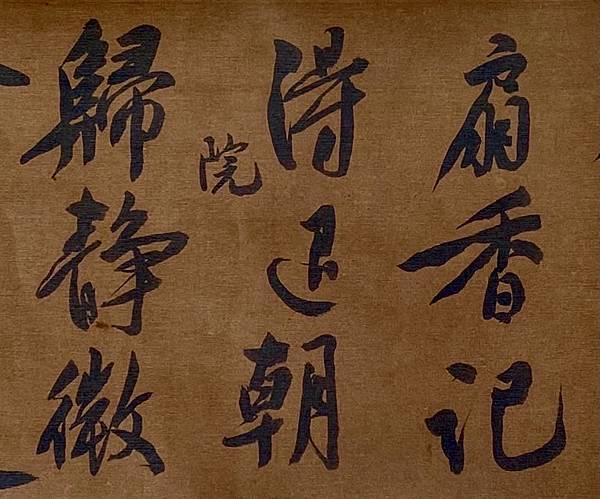 扇香記
得退朝
院
歸靜微